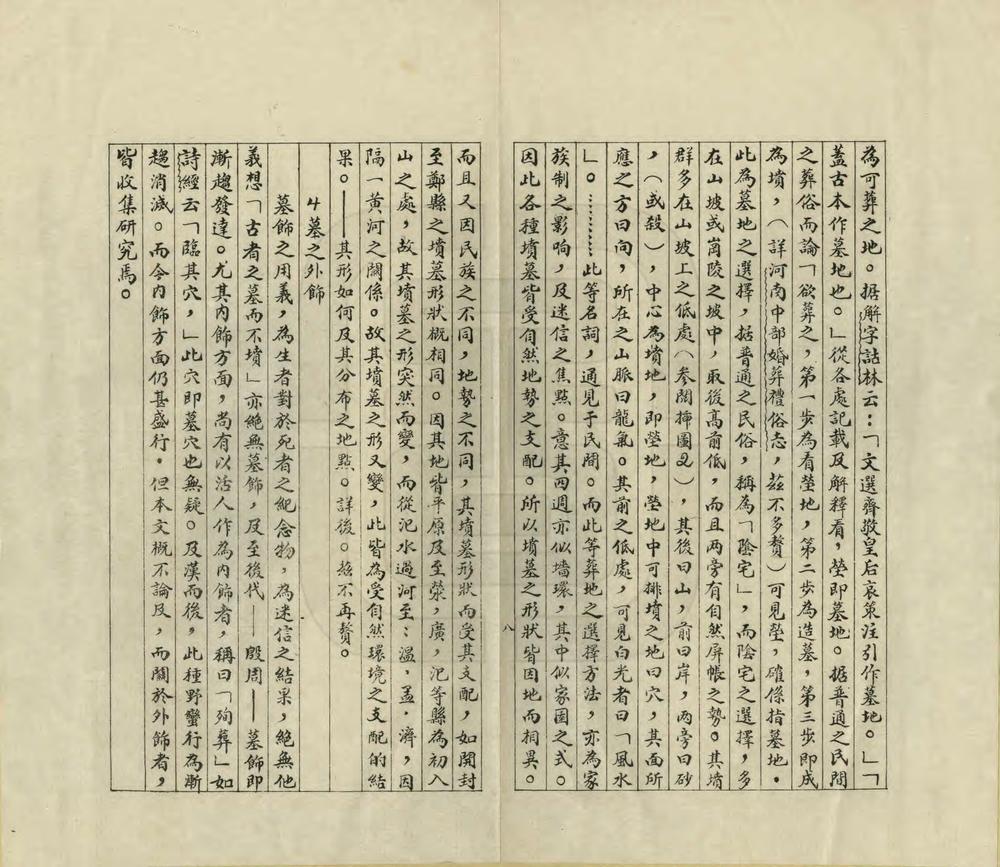 為可葬之地。据解字詁林云：「文選齊敬皇后哀策注引作墓地。」「
蓋古本作墓地也。」從各處記載及解釋看，塋即墓地。据普通之民間
之葬俗而論「欲葬之，第一步為看塋地，第二步為造墓，第三步即成
為墳，（詳河南中部婚葬禮俗志，茲不多贅）可見塋，確係指墓地．
此為墓地之選擇，据普通之民俗，稱為「陰宅」，而陰宅之選擇，多
在山坡或崗陵之坡中，取後高前低，而且兩旁有自然屏帳之勢。其墳
群多在山坡上之低處（參閱揷圖2），其後曰山，前曰岸，兩旁曰砂
，（或殺），中心為墳地，即塋地，塋地中可排墳之地曰穴，其面所
應之方曰向，所在之山脈曰龍氣。其前之低處，可見白光者曰「風水
」。………此等名詞，通見于民間。而此等葬地之選擇方法，亦為家
族制之影响，及迷信之焦點。意其四週亦似墻環，其中似家園之式。
因此各種墳墓皆受自然地勢之支配。所以墳墓之形狀皆因地而相異。
八
而且又因民族之不同，地勢之不同，其墳墓形狀而受其支配，如開封
至鄭縣之墳墓形狀概相同。因其地皆平原及至滎，廣，汜等縣為初入
山之處，故其墳墓之形突然而變，而從汜水過河至：溫，孟．濟，因
隔一黃河之關係。故其墳墓之形又變，此皆為受自然環境之支配的結
果。——其形如何及其分布之地點。詳後。茲不再贅。
4墓之外飾
墓飾之用義，為生者對於死者之紀念物，為迷信之結果，絕無他
義想「古者之墓而不墳」亦絕無墓飾，及至後代——殷周——墓飾即
漸趨發達。尤其內飾方面，尚有以活人作為內飾者，稱曰「殉葬」如
詩經云「臨其穴，」此穴即墓穴也無疑。及漢而後，此種野蠻行為漸
趨消滅。而今內飾方面仍甚盛行．但本文概不論及，而關於外飾者，
皆收集研究焉。